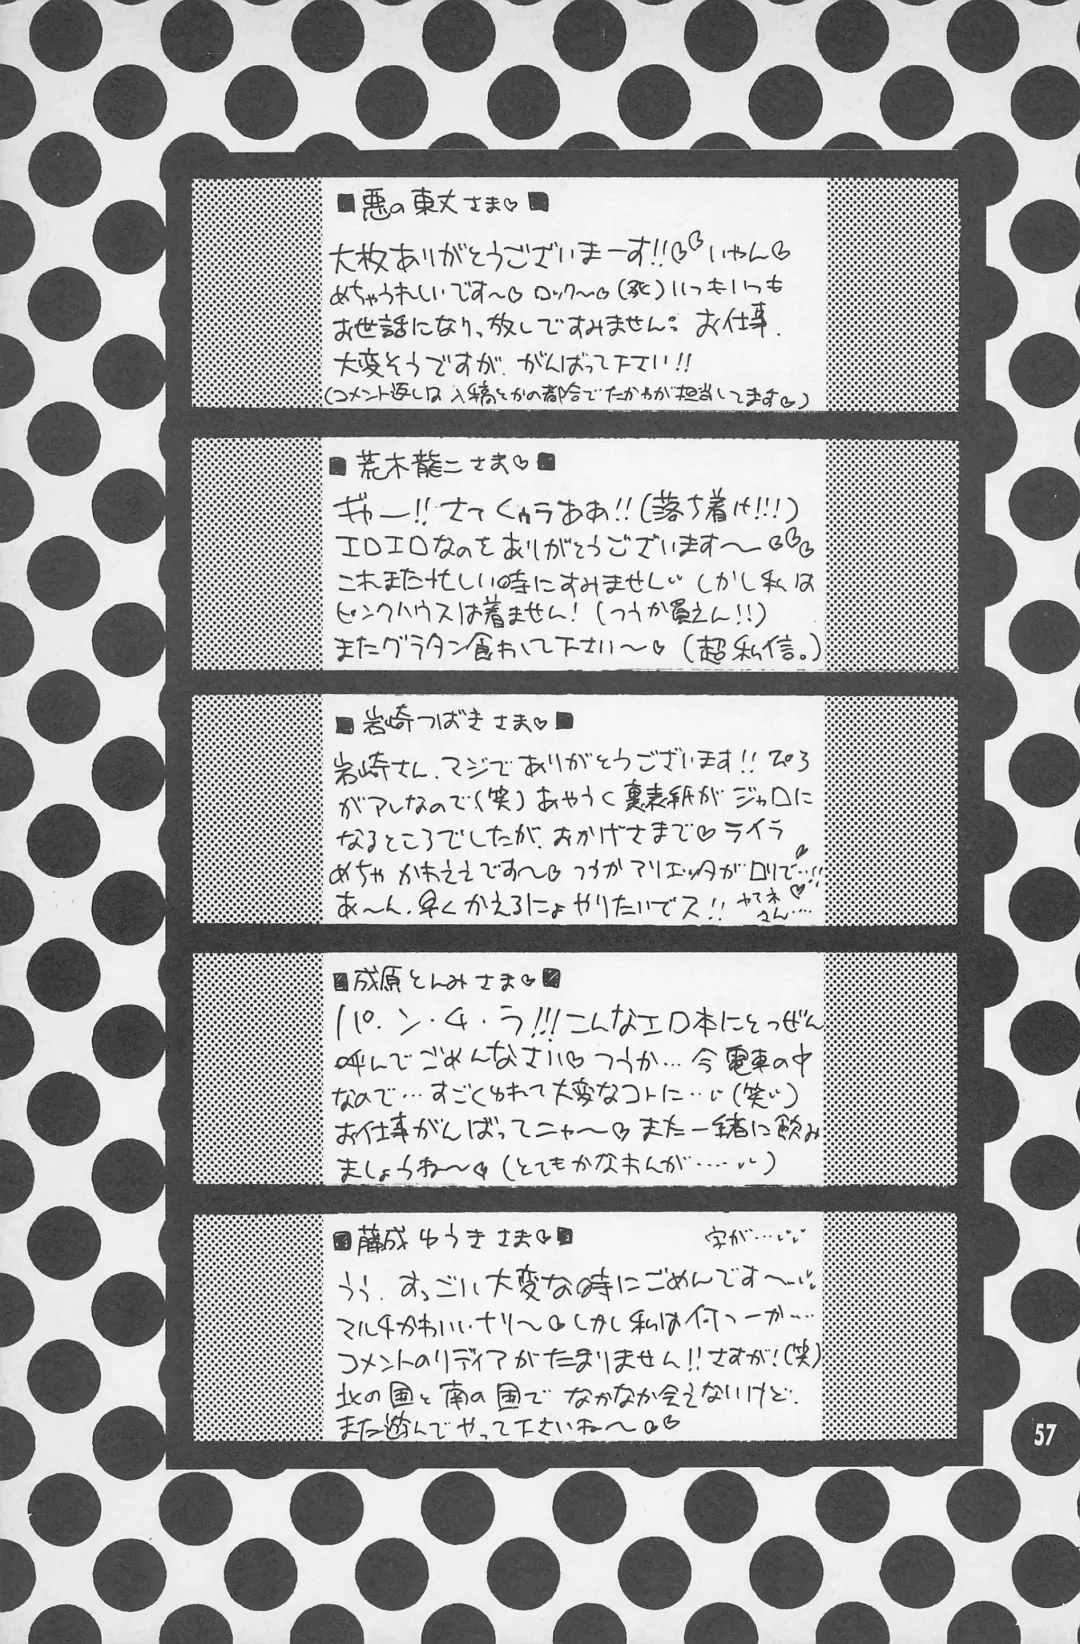 ■悪の東丈さま♡■
大枚ありがとうございまーす!!♡♡いやん♡
めちゃうれしいです〜♡ ロック〜♡(死)いつもいつも
お世話になりっ放しですみません。お仕事、
大変そうですが、がんばって下さい!!
(コメント返しは入稿とかの都合でたかわが担当してます♡)
■荒木龍二さま♡■
ギャー!!さてくゥラああ!!(落ち着け!!!)
エロエロなのをありがとうございます〜♡♡♡
これまた忙しい時にすみません しかし私は
ピンクハウスは着ません!(つうか買えん!!)
またグラタン食わして下さい〜♡(超私信。)
■岩崎つばきさま♡■
岩崎さん、マジでありがとうございます!!ぴろ
がアレなので(笑)あやうく裏表紙がジャロに
なるところでしたが、おかげさまで♡ライラ
めちゃかわええです〜♡つうかアリエッタがロリで…!!
あ〜ん、早くかえるにょやりたいでス!!ヤマネ
さん…
■成原とんみさま♡■
パ・ン・チ・ラ!!!こんなエロ本にとつぜん
呼んでごめんなさい♡つうか…今電車の中
なので…すごくゆれて大変なコトに…(笑)
お仕事がんばってニャ〜♡また一緒に飲み
ましょうね〜♡(とてもかなわんが……)
■藤成ゆうきさま♡■ 字が…
うう、すっごい大変な時にごめんです〜
マルチかわいいナリ〜♡しかし私は何つーか…
コメントのリディアがたまりません!!さすが!(笑)
北の国と南の国でなかなか会えないけど、
また遊んでやって下さいね〜♡♡
57